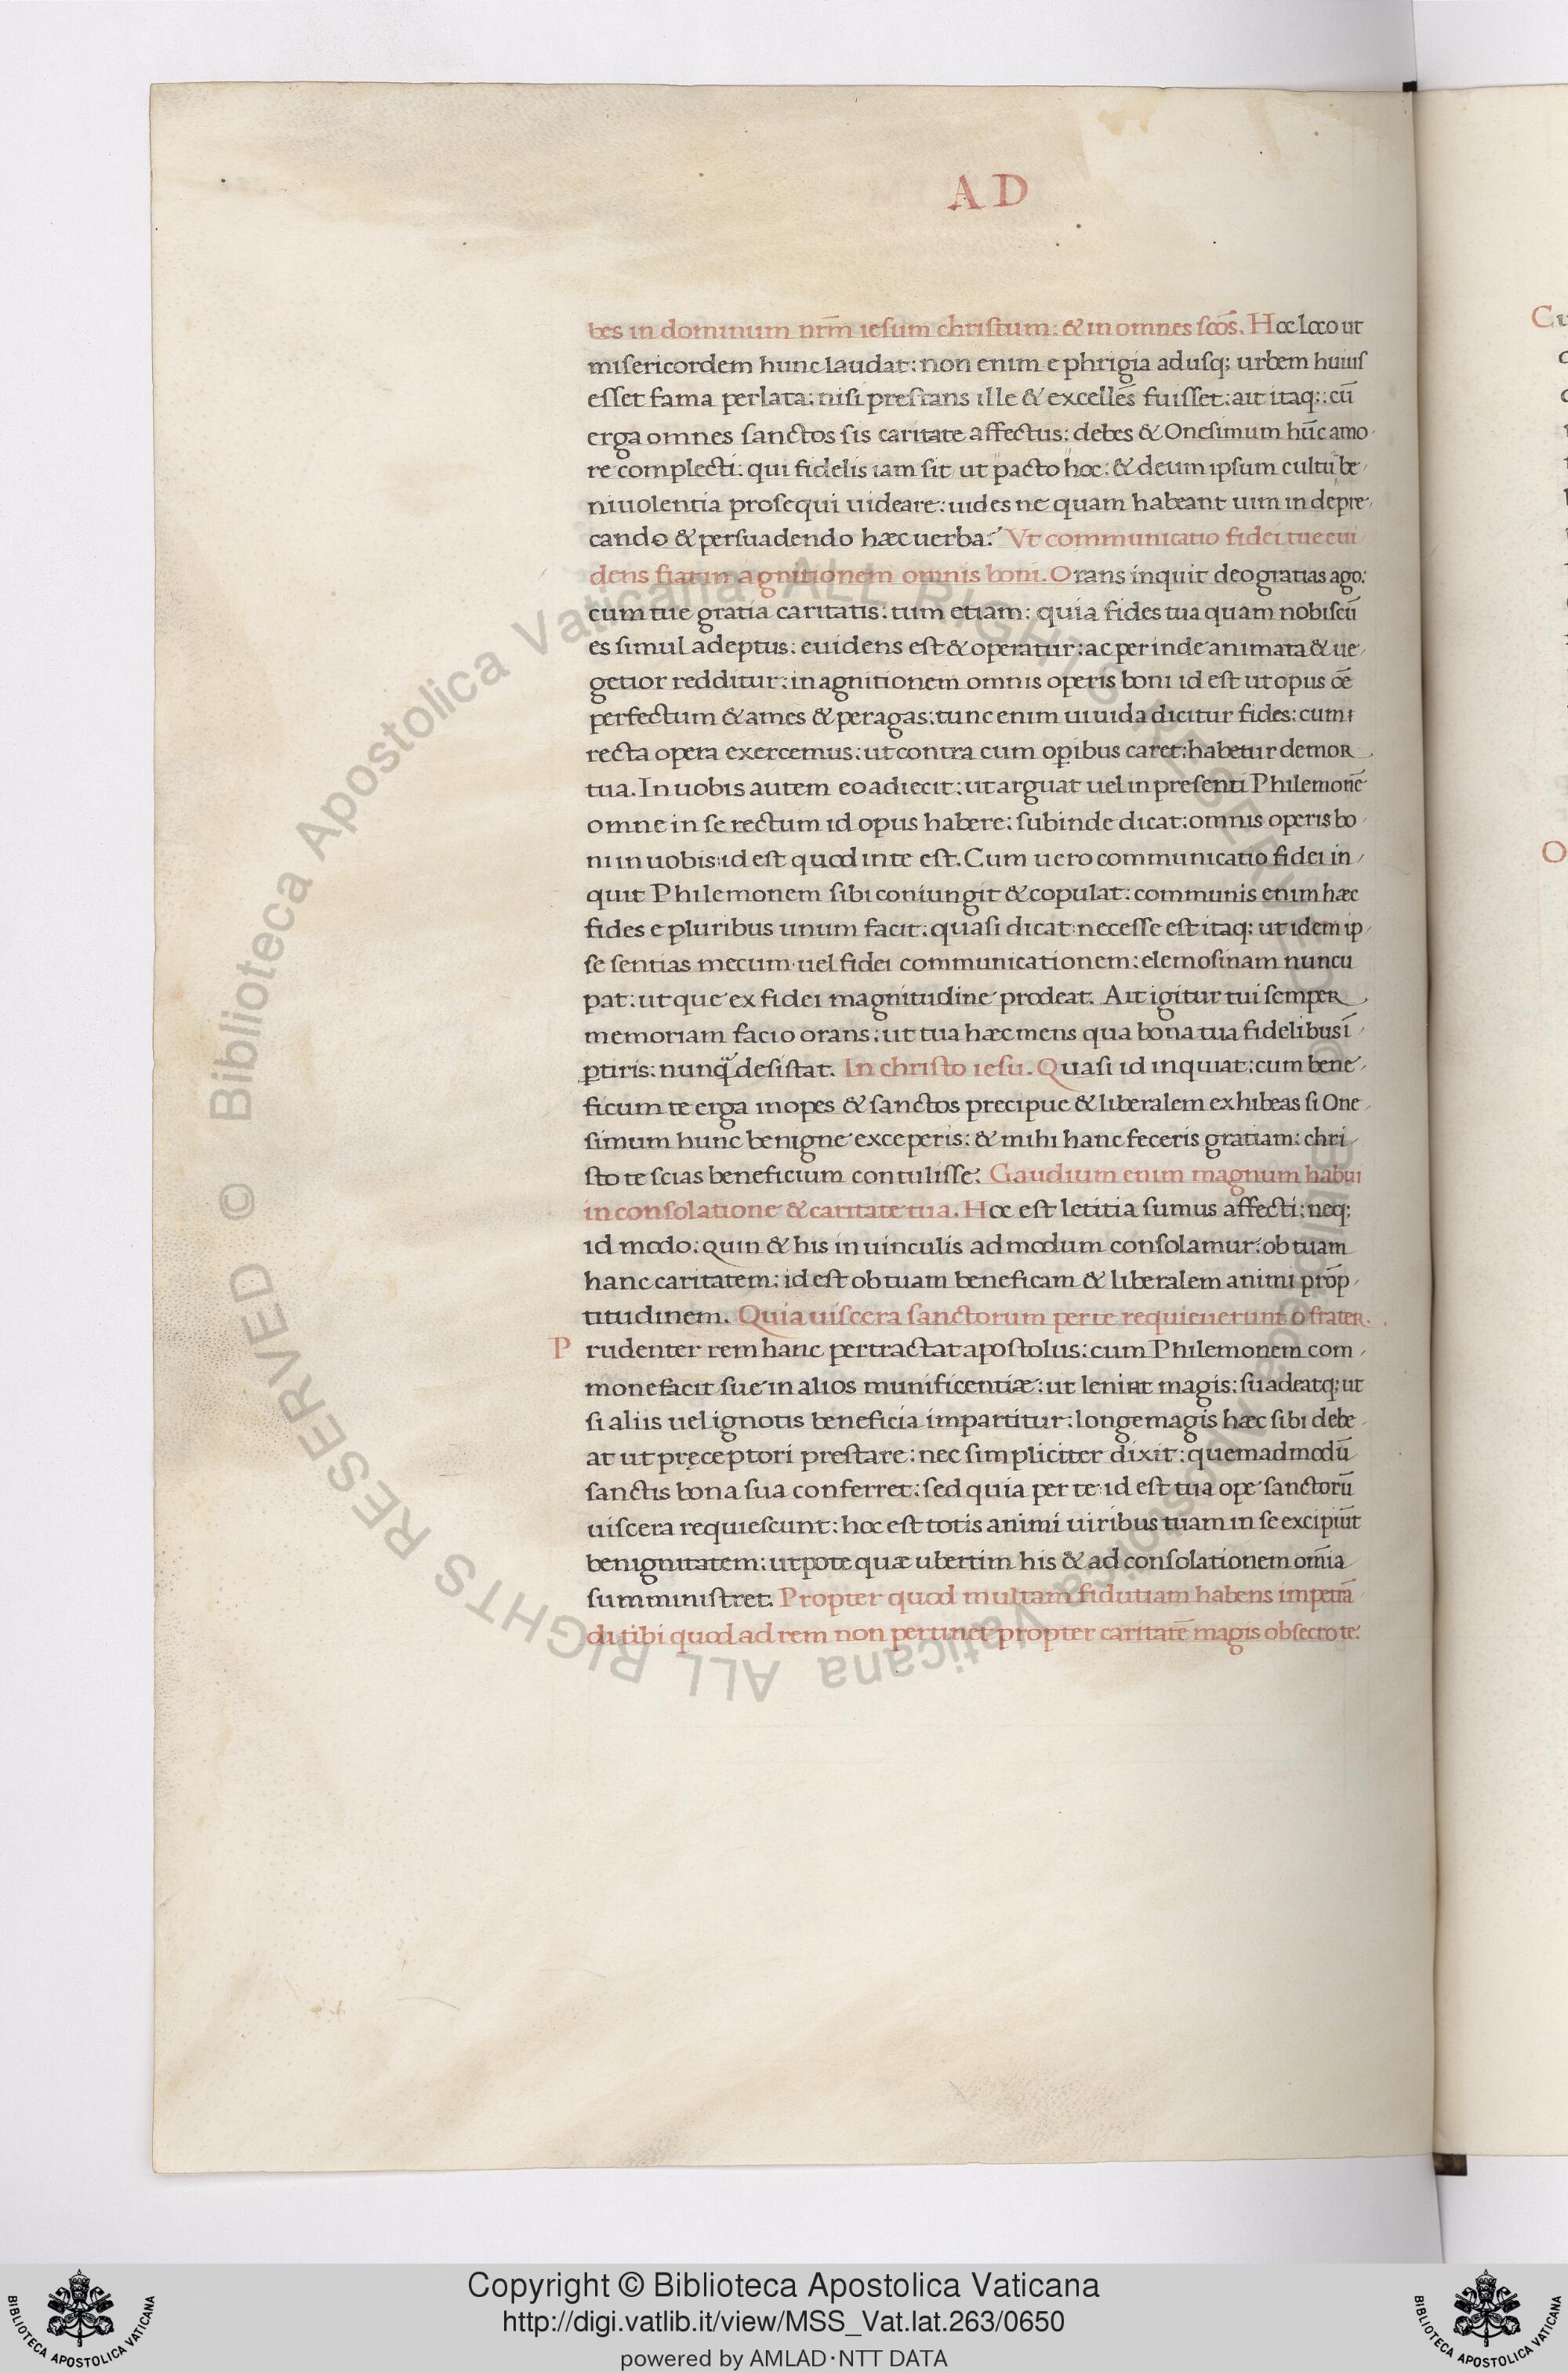 AD
bes in dominum nr̄m iesum christum: & in omnes sc̄os. Hoc loco ut
misericordem hunc laudat: non enim e phrigia adusq; urbem huius
esset fama perlata: nisi prestans ille & excellēs fuisset: ait itaq;: cū
erga omnes sanctos sis caritate affectus: debes & Onesimum hūc amo
re complecti: qui fidelis iam sit ut pacto hoc: & deum ipsum cultu be
niuolentia prosequi uideare: uides ne quam habeant uim in depre
cando & persuadendo hæc uerba: Vt communicatio fidei tue eui
dens fiat in agnitionem omnis boni. Orans inquit deo gratias ago:
cum tue gratia caritatis: tum etiam: quia fides tua quam nobiscū
es simul adeptus: euidens est & operatur: ac perinde animata & ue
getior redditur: in agnitionem omnis operis boni id est ut opus oē
perfectum & ames & peragas: tunc enim uiuida dicitur fides: cum
recta opera exercemus: ut contra cum opibus caret: habetur demor
tua. In uobis autem eo adiecit: ut arguat uel in presenti Philemonē
omne in se rectum id opus habere: subinde dicat: omnis operis bo
ni in uobis: id est quod in te est. Cum uero communicatio fidei in
quit Philemonem sibi coniungit & copulat: communis enim hæc
fides e pluribus unum facit: quasi dicat: necesse est itaq; ut idem ip
se sentias mecum. uel fidei communicationem: elemosinam nuncu
pat: ut que ex fidei magnitudine prodeat. Ait igitur tui semper
memoriam facio orans: ut tua hæc mens qua bona tua fidelibus ī
ꝑtiris: nunq̃ desistat. In christo iesu. Quasi id inquiat: cum bene
ficum te erga inopes & sanctos precipue & liberalem exhibeas si One
simum hunc benigne exceperis: & mihi hanc feceris gratiam: chri
sto te scias beneficium contulisse: Gaudium enim magnum habui
in consolatione & caritate tua. Hoc est letitia sumus affecti: neq;
id modo: quin & his in uinculis admodum consolamur: ob tuam
hanc caritatem: id est ob tuam beneficam & liberalem animi prōp
titudinem. Quia uiscera sanctorum per te requieuerunt o frater.
Prudenter rem hanc pertractat apostolus: cum Philemonem com
monefacit sue in alios munificentiæ: ut leniat magis: suadeatq; ut
si aliis uel ignotis beneficia impartitur: longe magis hæc sibi debe
at ut pręceptori prestare: nec simpliciter dixit: quemadmodū
sanctis bona sua conferret: sed quia per te: id est tua ope sanctorū
uiscera requiescunt: hoc est totis animi uiribus tuam in se excipiūt
benignitatem: utpote quæ ubertim his & ad consolationem om̄ia
sumministret. Propter quod multam fidutiam habens imperā
di tibi quod ad rem non pertinet propter caritatē magis obsecro te:
Copyright © Biblioteca Apostolica Vaticana
http://digi.vatlib.it/view/MSS_Vat.lat.263/0650
powered by AMLAD·NTT DATA
BIBLIOTECA APOSTOLICA VATICANA
BIBLIOTECA APOSTOLICA VATICANA
© Biblioteca Apostolica Vaticana ALL RIGHTS RESERVED © Biblioteca Apostolica Vaticana ALL RIGHTS RESERVED